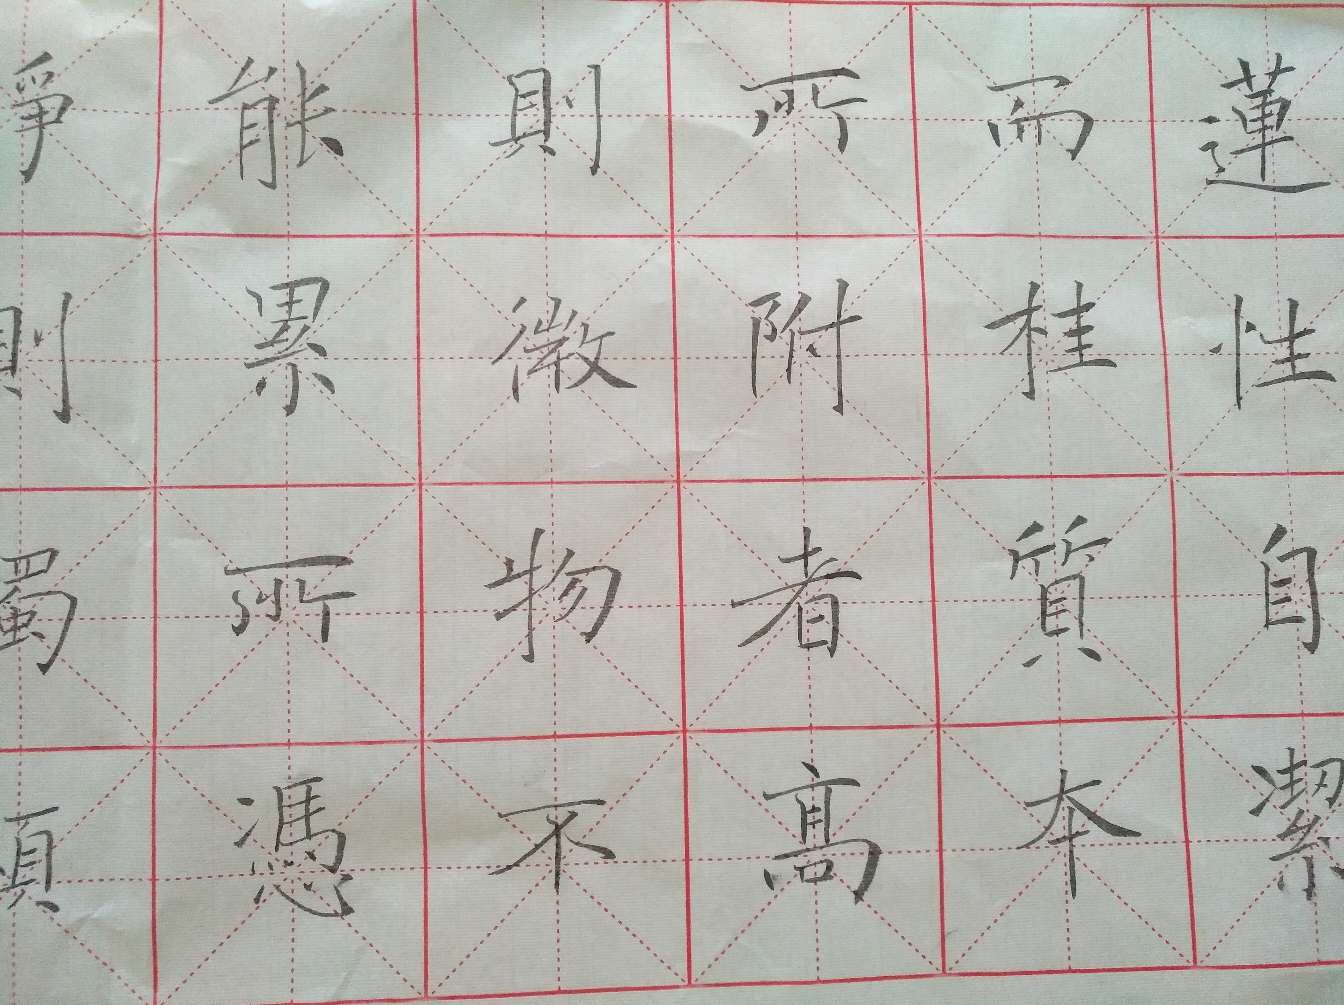 蓮性自潔
而桂質本
所附者高
則微物不
能累所憑
淨則